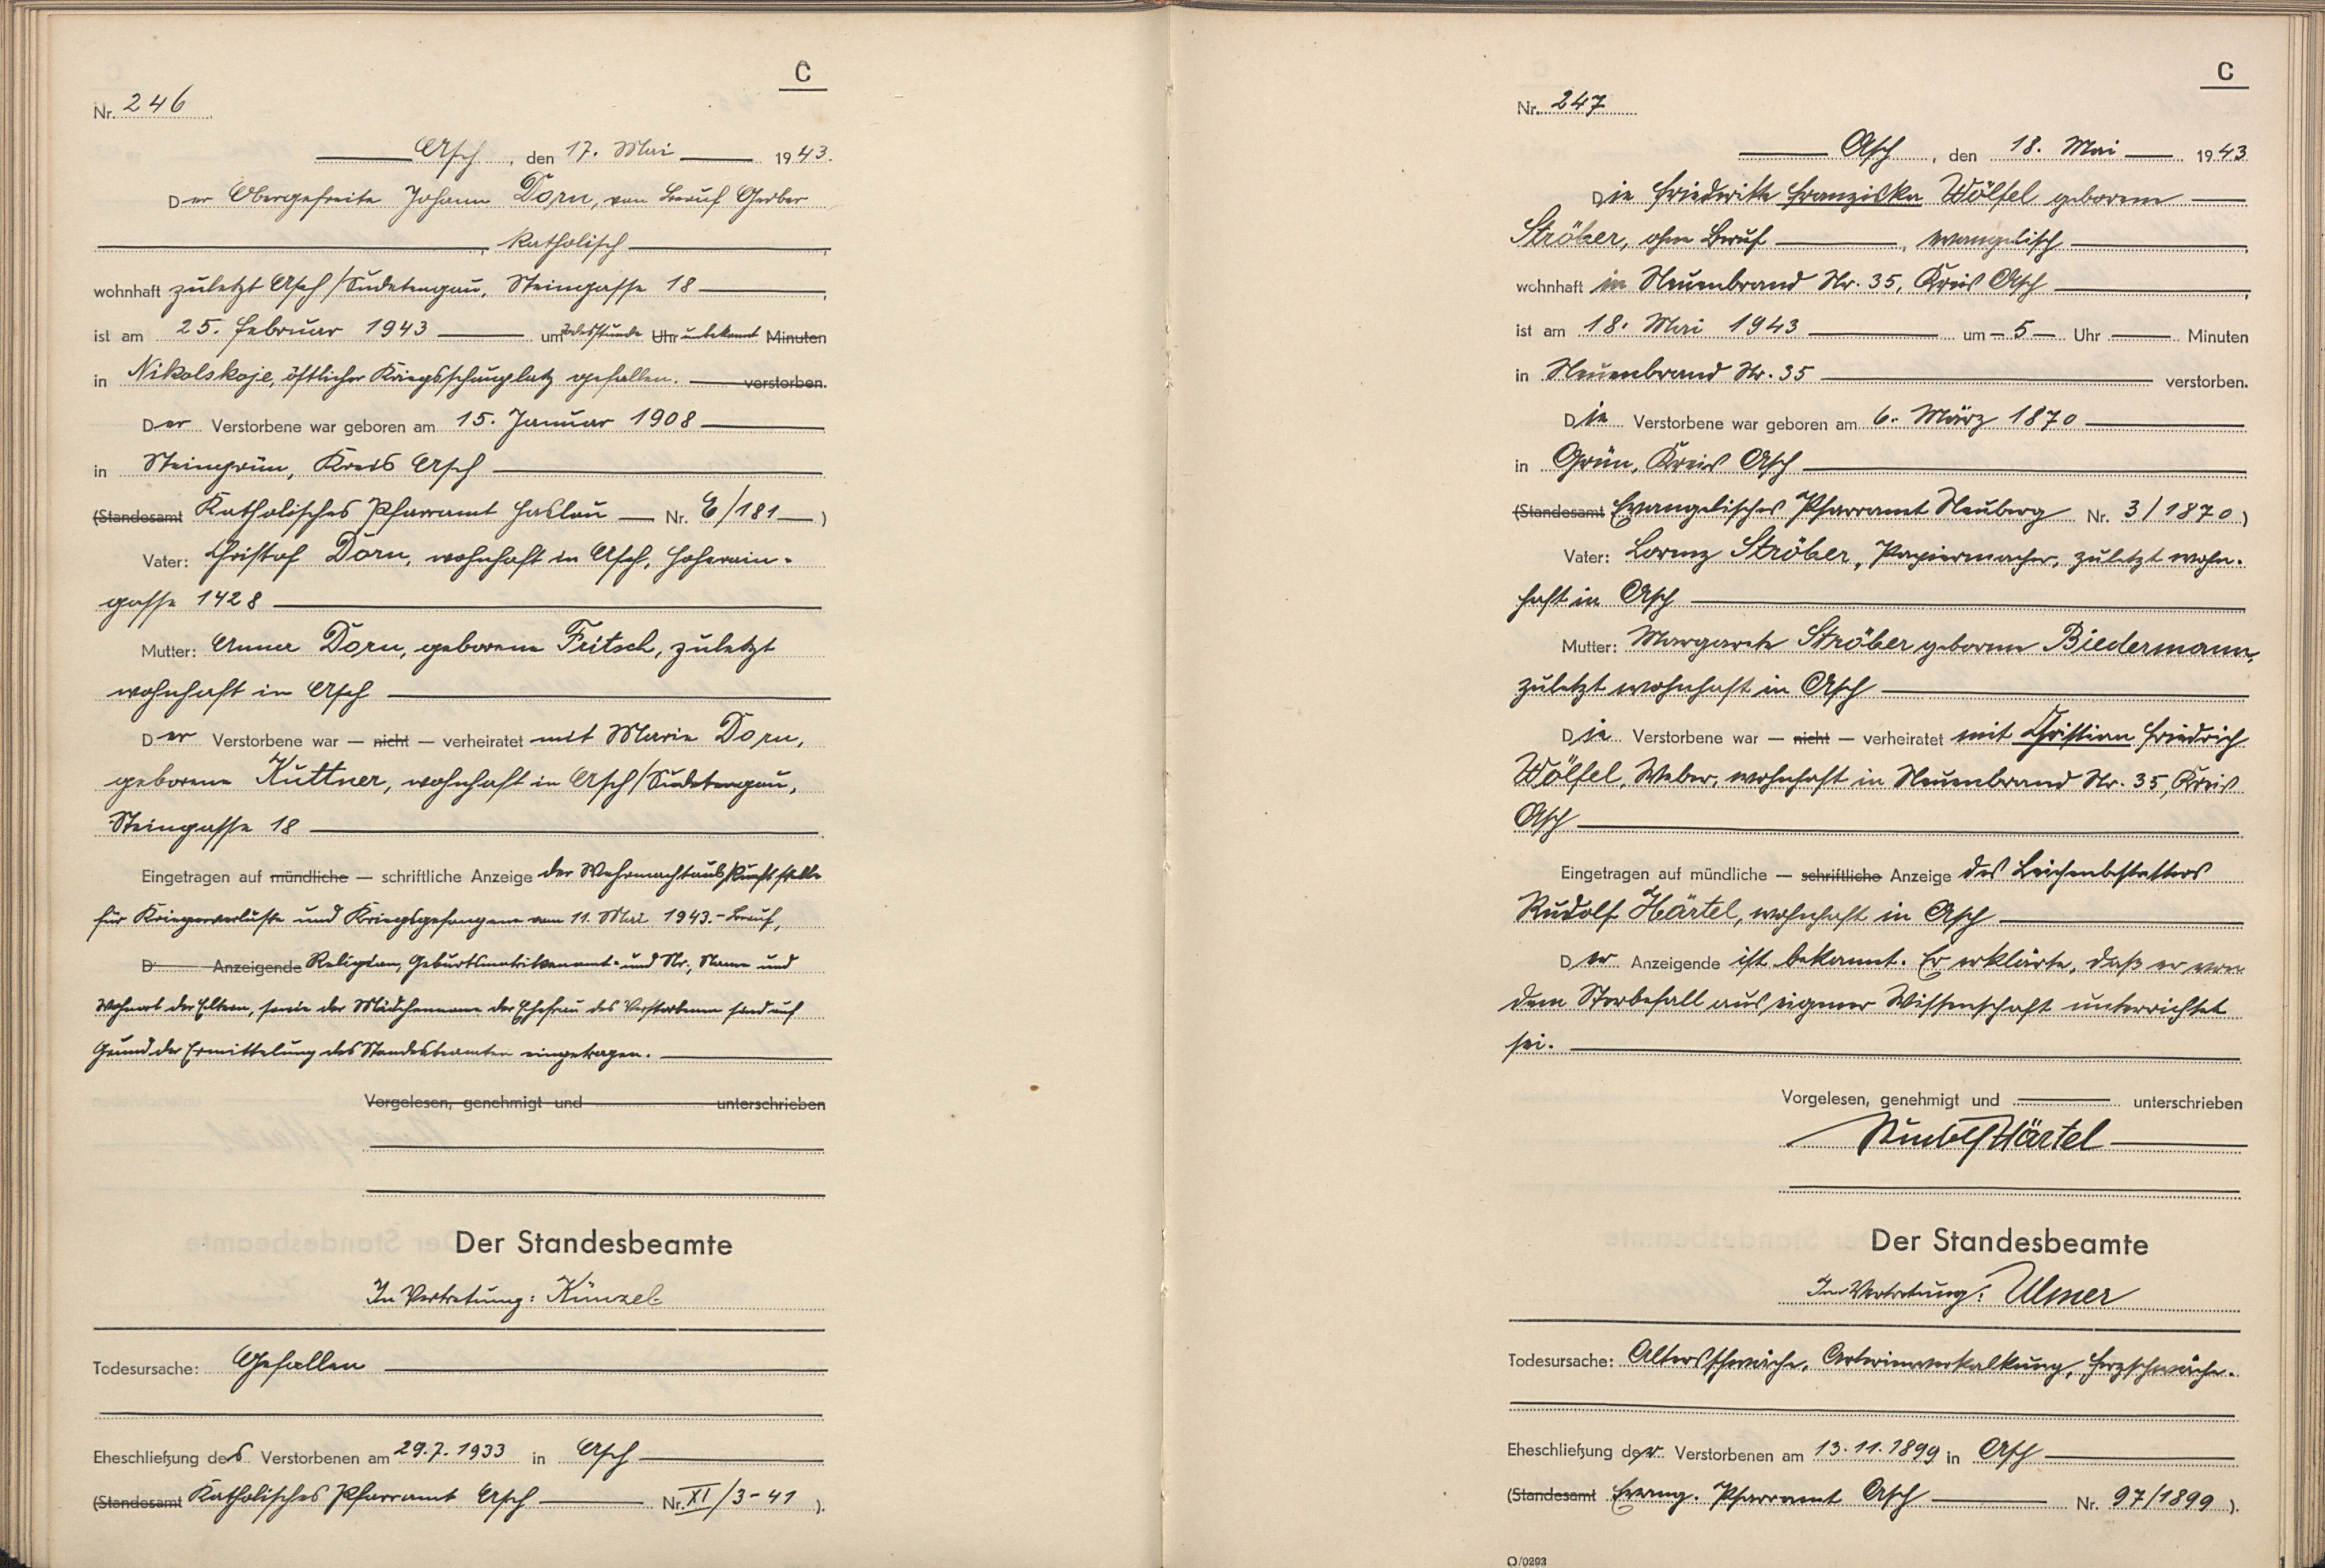 C
Nr. 246
Asch, den 17. Mai 1943.
Der Obergefreite Johann Dorn, von Beruf Gerber
, katholisch ,
wohnhaft zuletzt Asch/Sudetengau, Steingasse 18 ,
ist am 25. Februar 1943 um Todesstunde Uhr unbekannt Minuten
in Nikolskoje, östlicher Kriegsschauplatz gefallen. verstorben.
Der Verstorbene war geboren am 15. Januar 1908
in Steingrün, Kreis Asch
(Standesamt Katholisches Pfarramt Haslau Nr. 6/181 )
Vater: Christof Dorn, wohnhaft in Asch, Hoherain-
gasse 1428
Mutter: Anna Dorn, geborene Fritsch, zuletzt
wohnhaft in Asch
Der Verstorbene war — nicht — verheiratet mit Marie Dorn,
geborene Kuttner, wohnhaft in Asch/Sudetengau,
Steingasse 18
Eingetragen auf mündliche — schriftliche Anzeige der Wehrmachtauskunftstelle
für Kriegerverluste und Kriegsgefangene vom 11. Mai 1943.- Beruf,
D Anzeigende Religion, Geburtsmatrikenamt- und Nr., Name und
Wohnort der Eltern, sowie der Mädchenname der Ehefrau des Verstorbenen sind auf
Grund der Ermittelung des Standesbeamten eingetragen.
Vorgelesen, genehmigt und unterschrieben
Der Standesbeamte
In Vertretung: Künzel
Todesursache: Gefallen
Eheschließung des Verstorbenen am 29.7.1933 in Asch
(Standesamt Katholisches Pfarramt Asch Nr. XI/3-41 ).
C
Nr. 247
Asch, den 18. Mai 1943
Die Friederike Franziska Wölfel geborene
Ströber, ohne Beruf , evangelisch ,
wohnhaft in Neuenbrand Nr. 35, Kreis Asch ,
ist am 18. Mai 1943 um — 5 — Uhr Minuten
in Neuenbrand Nr. 35 verstorben.
Die Verstorbene war geboren am 6. März 1870
in Grün, Kreis Asch
(Standesamt Evangelisches Pfarramt Neuberg Nr. 3/1870 )
Vater: Lorenz Ströber, Papiermacher, zuletzt wohn-
haft in Asch
Mutter: Margarete Ströber geborene Biedermann,
zuletzt wohnhaft in Asch
Die Verstorbene war — nicht — verheiratet mit Christian Friedrich
Wölfel, Weber, wohnhaft in Neuenbrand Nr. 35, Kreis
Asch
Eingetragen auf mündliche — schriftliche Anzeige des Leichenbestatters
Rudolf Härtel, wohnhaft in Asch
Der Anzeigende ist bekannt. Er erklärte, daß er von
dem Sterbefall aus eigener Wissenschaft unterrichtet
sei.
Vorgelesen, genehmigt und unterschrieben
Rudolf Härtel
Der Standesbeamte
In Vertretung: Ulmer
Todesursache: Altersschwäche, Arterienverkalkung, Herzschwäche.
Eheschließung der Verstorbenen am 13.11.1899 in Asch
(Standesamt Evang. Pfarramt Asch Nr. 97/1899 ).
O/0293